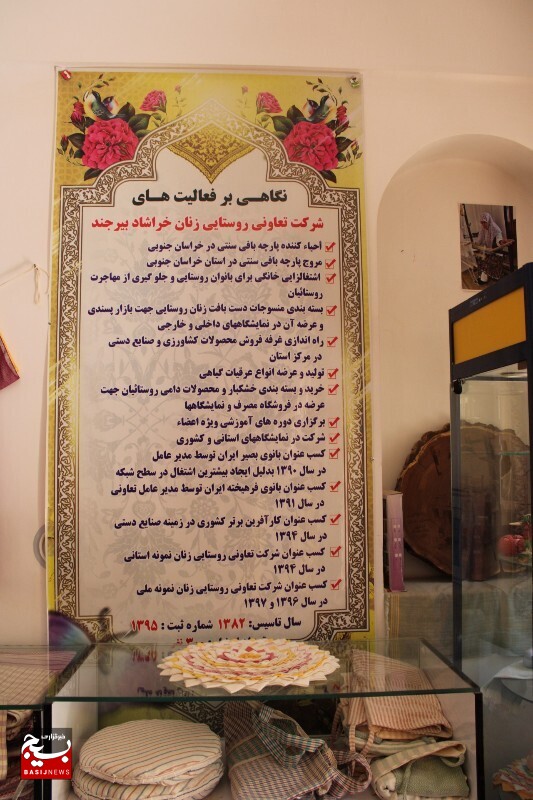 نگاهی بر فعالیت های
شرکت تعاونی روستایی زنان خراشاد بیرجند
احیاء کننده پارچه بافی سنتی در خراسان جنوبی
مروج پارچه بافی سنتی در استان خراسان جنوبی
اشتغالزایی خانگی برای بانوان روستایی و جلو گیری از مهاجرت
روستائیان
بسته بندی منسوجات دست بافت زنان روستایی جهت بازار پسندی
و عرضه آن در نمایشگاههای داخلی و خارجی
راه اندازی غرفه فروش محصولات کشاورزی و صنایع دستی
در مرکز استان
تولید و عرضه انواع عرقیات گیاهی
خرید و بسته بندی خشکبار و محصولات دامی روستائیان جهت
عرضه در فروشگاه مصرف و نمایشگاهها
برگزاری دوره های آموزشی ویژه اعضاء
شرکت در نمایشگاههای استانی و کشوری
کسب عنوان بانوی بصیر ایران توسط مدیر عامل
در سال ۱۳۹۰ بدلیل ایجاد بیشترین اشتغال در سطح شبکه
کسب عنوان بانوی فرهیخته ایران توسط مدیر عامل تعاونی
در سال ۱۳۹۱
کسب عنوان کارآفرین برتر کشوری در زمینه صنایع دستی
در سال ۱۳۹۴
کسب عنوان شرکت تعاونی روستایی زنان نمونه استانی
در سال ۱۳۹۴
کسب عنوان شرکت تعاونی روستایی زنان نمونه ملی
در سال ۱۳۹۶ و ۱۳۹۷
سال تاسیس: ۱۳۸۲ شماره ثبت : ۱۳۹۵
خبرگزاری
بسیج
BASIJNEWS